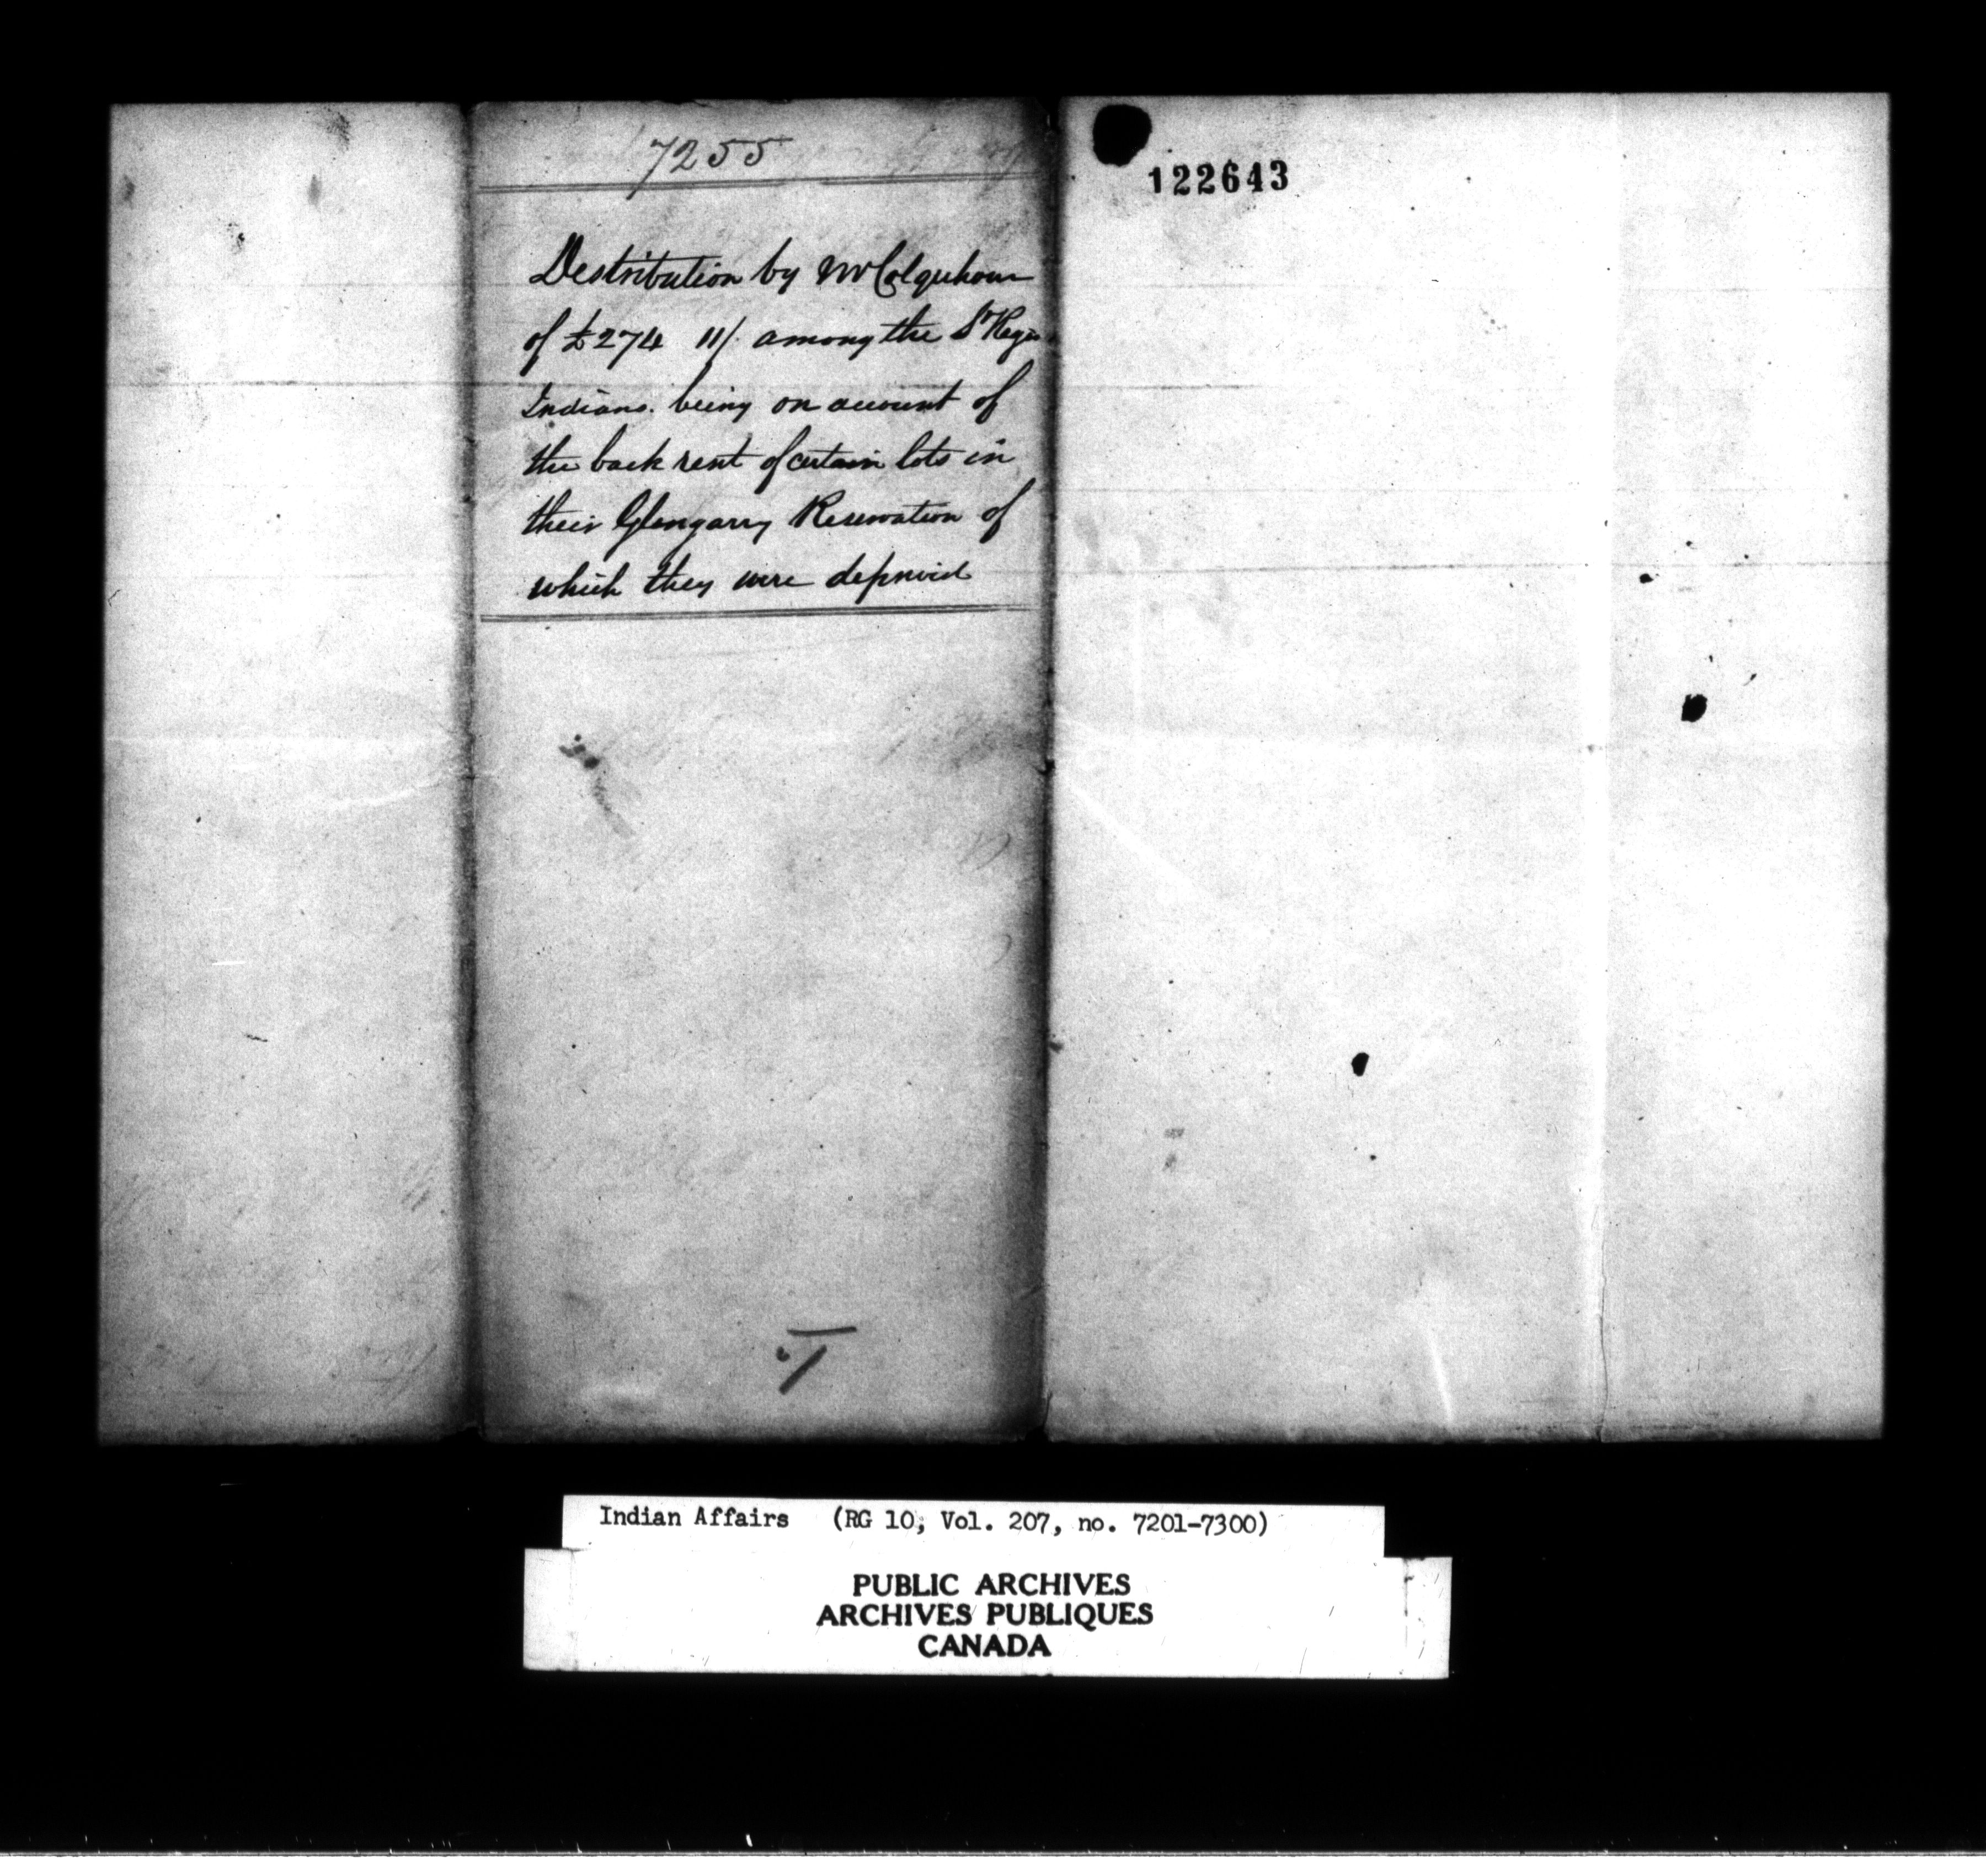 7255
Destribution by Mr Colquhoun
of £274 11/. among the St Regis
Indians. being on account of
the back rent of certain lots in
their Glengarry Reservation of
which they were deprived
122643
Indian Affairs (RG 10, Vol. 207, no. 7201-7300)
PUBLIC ARCHIVES
ARCHIVES PUBLIQUES
CANADA